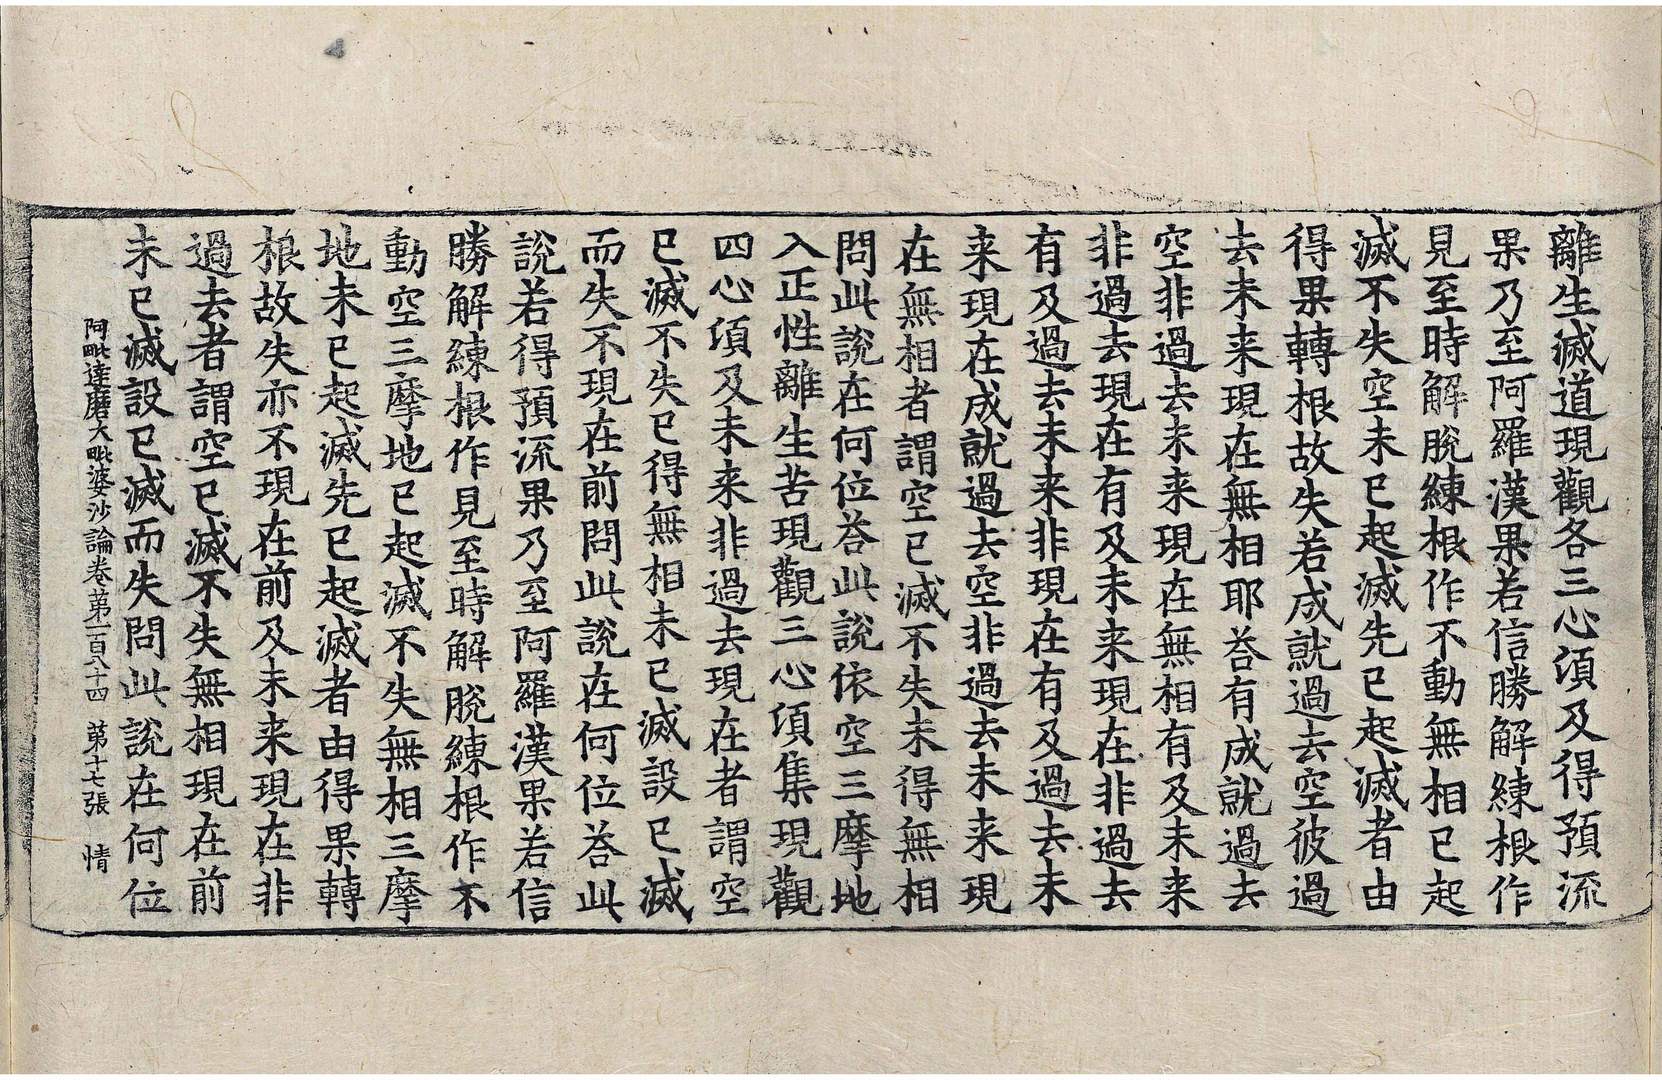 離生滅道現觀各三心湏及得預流
果乃至阿羅漢果若信勝解練根作
見至時解脫練根作不動無相已起
滅不失空未已起滅先已起滅者由
得果轉根故失若成就過去空彼過
去未来現在無相耶荅有成就過去
空非過去未来現在無相有及未来
非過去現在有及未来現在非過去
有及過去未来非現在有及過去未
来現在成就過去空非過去未来現
在無相者謂空已滅不失未得無相
問此說在何位荅此說依空三摩地
入正性離生苦現觀三心湏集現觀
四心湏及未来非過去現在者謂空
已滅不失已得無相未已滅設已滅
而失不現在前問此說在何位荅此
說若得預流果乃至阿羅漢果若信
勝解練根作見至時解脫練根作不
動空三摩地已起滅不失無相三摩
地未已起滅先已起滅者由得果轉
根故失亦不現在前及未来現在非
過去者謂空已滅不失無相現在前
未已滅設已滅而失問此說在何位
阿毗達磨大毗婆沙論卷第一百八十四 第十七張 情